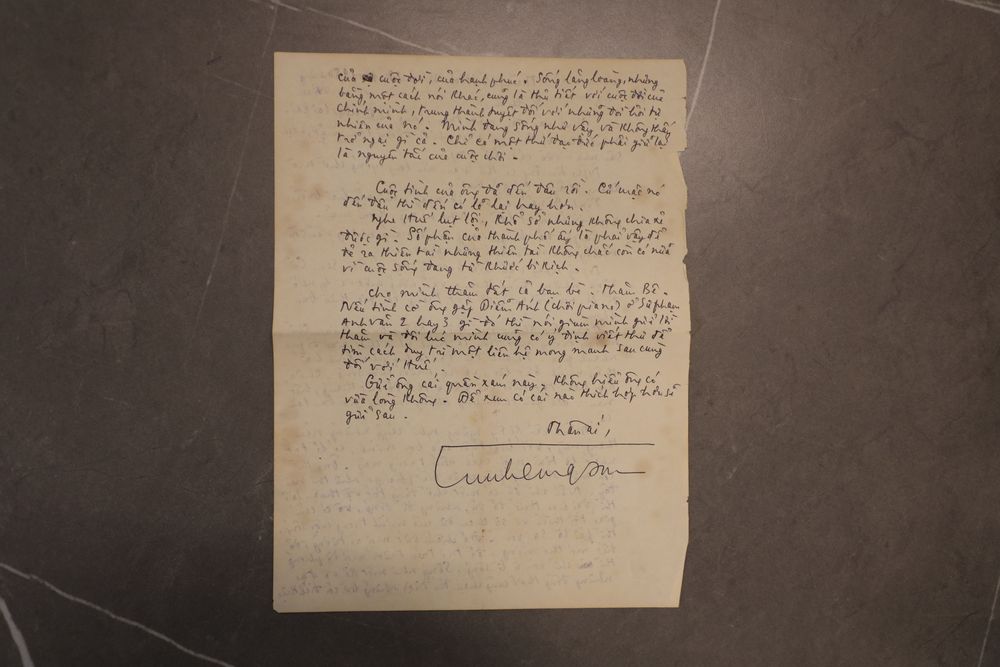 của cuộc đời, của hạnh phúc. Sống lang loàng, nhưng
bằng một cách nói khác, cũng là thủ tiết với cuộc đời của
chính mình, trung thành tuyệt đối với những đòi hỏi tự
nhiên của nó. Mình đang sống như vậy và không thấy
trở ngại gì cả. Chỉ có một thứ đạo đức phải giữ lại
là nguyên tắc của cuộc chơi.
Cuộc tình của ông đã đến đâu rồi. Cứ mặc nó
đến đâu thì đến có lẽ lại hay hơn.
Nghe Huế lụt lội, khổ sở nhưng không chia xẻ
được gì. Số phận của thành phố ấy là phải vậy để
đẻ ra thiên tài nhưng thiên tài không chắc còn có nữa
vì cuộc sống đang từ khước bi kịch.
Cho mình thăm tất cả bạn bè. Thăm Bê.
Nếu tình cờ ông gặp Diễm Anh (chơi piano) ở Sư phạm
Anh văn 2 hay 3 gì đó thì nói giùm mình gửi lời
thăm và đôi lúc mình cũng có ý định viết thư để
tìm cách duy trì một liên hệ mong manh sau cùng
đối với Huế.
Gửi ông cái quần xám này. Không hiểu ông có
vừa lòng không. Để xem có cái nào thích hợp hơn sẽ
gửi sau.
Thân ái,